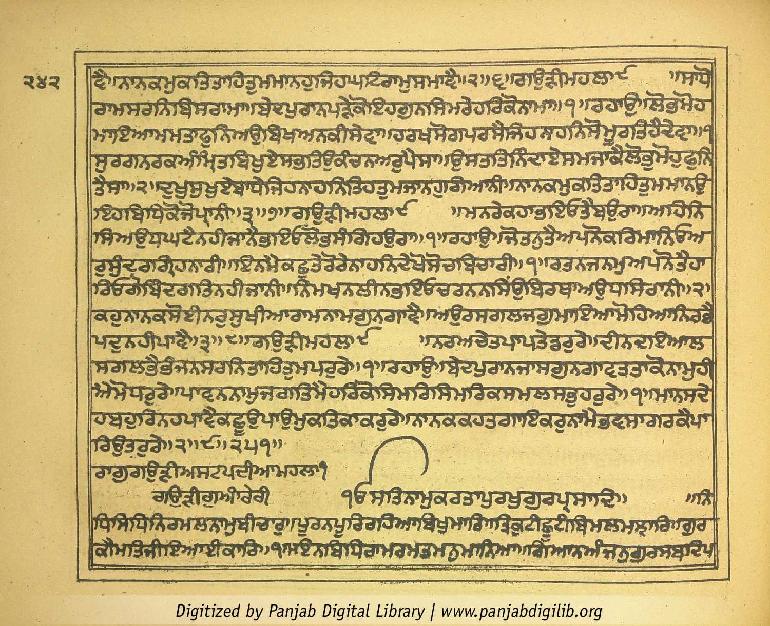 ੨੪੨
ਵੈ॥ਨਾਨਕਮੁਕਤਿਤਾਹਿਤੁਮਮਾਨਹੁਜਿਹਘਟਿਰਾਮੁਸਮਾਵੈ॥੨॥੬॥ਗਉੜੀਮਹਲਾ੯ ॥ਸਾਧੋ
ਰਾਮਸਰਨਿਬਿਸਰਾਮਾ॥ਬੇਦਪੁਰਾਨਪੜੇਕੋਇਹਗੁਨਸਿਮਰੇਹਰਿਕੋਨਾਮਾ॥੧॥ਰਹਾਉ॥ਲੋਭਮੋਹ
ਮਾਇਆਮਮਤਾਫੁਨਿਅਉਬਿਖਅਨਕੀਸੇਵਾ॥ਹਰਖਸੋਗਪਰਸੈਜਿਹਨਾਹਨਿਸੋਮੂਰਤਿਹੈਦੇਵਾ॥੧
ਸੁਰਗਨਰਕਅੰਮ੍ਰਿਤਬਿਖੁਏਸਭਤਿਉਕੰਚਨਅਰੁਪੈਸਾ॥ਉਸਤਤਿਨਿੰਦਾਏਸਮਜਾਕੈਲੋਭੁਮੋਹੁਫੁਨਿ
ਤੈਸਾ॥੨॥ਦੁਖੁਸੁਖੁਏਬਾਧੇਜਿਹਨਾਹਨਿਤਿਹਤੁਮਜਾਨਹੁਗਿਆਨੀ॥ਨਾਨਕਮੁਕਤਿਤਾਹਿਤੁਮਮਾਨਉ
ਇਹਬਿਧਿਕੋਜੋਪ੍ਰਾਨੀ॥੩॥੭॥ਗਉੜੀਮਹਲਾ੯ ॥ਮਨਰੇਕਹਾਭਇਓਤੈਬਉਰਾ॥ਅਹਿਨਿ
ਸਿਅਉਧਘਟੈਨਹੀਜਾਨੈਭਇਓਲੋਭਸੰਗਿਹਉਰਾ॥੧॥ਰਹਾਉ॥ਜੋਤਨੁਤੈਅਪਨੋਕਰਿਮਾਨਿਓਅ
ਰੁਸੁੰਦਰਗ੍ਰਿਹਨਾਰੀ॥ਇਨਮੈਕਛੁਤੇਰੋਰੇਨਾਹਨਿਦੇਖੋਸੋਚਬਿਚਾਰੀ॥੧॥ਰਤਨਜਨਮੁਅਪਨੋਤੈਹਾ
ਰਿਓਗੋਬਿੰਦਗਤਿਨਹੀਜਾਨੀ॥ਨਿਮਖਨਲੀਨਭਇਓਚਰਨਨਸਿੰਉਬਿਰਥਾਅਉਧਸਿਰਾਨੀ॥੨॥
ਕਹੁਨਾਨਕਸੋਈਨਰੁਸੁਖੀਆਰਾਮਨਾਮਗੁਨਗਾਵੈ॥ਅਉਰਸਗਲਜਗੁਮਾਇਆਮੋਹਿਆਨਿਰਭੈ
ਪਦੁਨਹੀਪਾਵੈ॥੩॥੮॥ਗਉੜੀਮਹਲਾ੯ ॥ਨਰਅਚੇਤਪਾਪਤੇਡਰੁਰੇ॥ਦੀਨਦਇਆਲ
ਸਗਲਭੈਭੰਜਨਸਰਨਿਤਾਹਿਤੁਮਪਰੁਰੇ॥੧॥ਰਹਾਉ॥ਬੇਦਪੁਰਾਨਜਾਸਗੁਨਗਾਵਤਤਾਕੋਨਾਮੁਹੀ
ਐਮੋਧਰੁਰੇ॥ਪਾਵਨਨਾਮੁਜਗਤਿਮੈਹਰਿਕੋਸਿਮਰਿਸਿਮਰਿਕਸਮਲਸਭਹਰੁਰੇ॥੧॥ਮਾਨਸਦੇ
ਹਬਹੁਰਿਨਹਪਾਵੈਕਛੂਉਪਾਉਮੁਕਤਿਕਾਕਰੁਰੇ॥ਨਾਨਕਕਹਤਗਾਇਕਰੁਨਾਮੈਭਵਸਾਗਰਕੈਪਾ
ਰਿਉਤਰੁਰੇ॥੨॥੯॥੨੫੧॥
ਰਾਗੁਗਉੜੀਅਸਟਪਦੀਆਮਹਲਾ੧
ਗਉੜੀਗੁਆਰੇਰੀ ੴਸਤਿਨਾਮੁਕਰਤਾਪੁਰਖੁਗੁਰਪ੍ਰਸਾਦਿ॥ ॥ਨਿ
ਧਿਸਿਧਿਨਿਰਮਲਨਾਮੁਬੀਚਾਰੁ॥ਪੂਰਨਪੂਰਿਰਹਿਆਬਿਖੁਮਾਰਿ॥ਤ੍ਰਿਕੁਟੀਛੂਟੀਬਿਮਲਮਝਾਰਿ॥ਗੁਰ
ਕੀਮਤਿਜੀਇਆਈਕਾਰਿ॥੧॥ਇਨਬਿਧਿਰਾਮਰਮਤਮਨੁਮਾਨਿਆ॥ਗਿਆਨਅੰਜਨੁਗੁਰਸਬਦਿਪ
Digitized by Panjab Digital Library | www.panjabdigilib.org